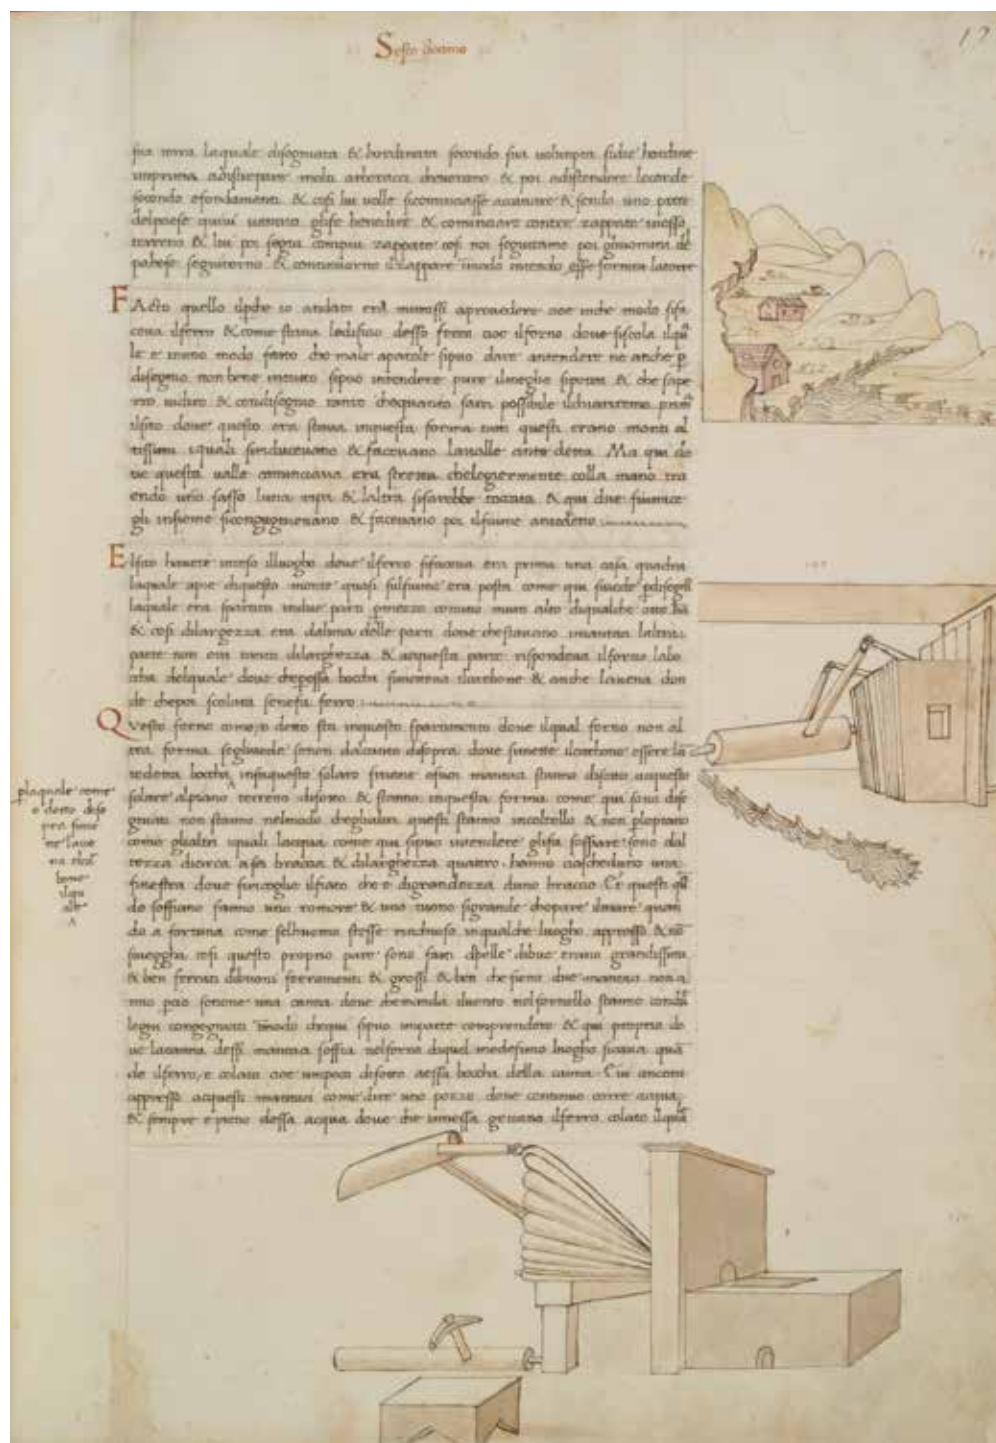 Sesto decimo
12
sua terra laquale disegniata & hordinata secondo sua uolunta fudie hordine
imprima adistirpare molti arboracci cheuerano & poi adistendere lecorde
secondo efondamenti & cosi lui uolle sicominciasse acauare & sendo uno prete
delpaese quiui uenuto glife benedire & cominciare contre zappate inesso
terreno & lui poi seguì compiu zappate cosi noi seguitamo poi glhuomini del
paese seguitorno & continuorno il zappare modo intendo esse fornita latorre
FActo quello ilpche io andato era mimissi aprouedere cioe inche modo sifa
ceua ilferro & come staua ledifitio desso ferro cioe ilforno doue siscola ilqua
le e inuno modo fatto che male aparole sipuo dare antendere ne anche p
disegno non bene intutto sipuo intendere pure ilmeglio sipotra & che sape
rro indito & condisegno tanto chequanto sara possibile ilchiariremo prima
ilsito doue questo era staua inquesta forma tutti questi erano monti al
tissimi iquali sinduceuano & faceuano laualle anto detta Ma qui do
ue questa ualle cominciaua era stretta chelegiermente colla mano tra
endo uno sasso luna ripa & laltra sisarebbe toccata & qui due fiumice
gli insieme sicongiugneuano & faceuano poi ilfiume antedetto
Elsito hauete inteso illuogho doue ilferro sifaceua era prima una casa quadra
laquale apie diquesto monte quasi sulfiume era posta come qui siuede pdisegno
laquale era spartita indue parti pmezzo cōmuno muro alto diqualche otto ba
& cosi dilargezza era daluna delle parti doue chestauano imantaci laltra
parte non era meno dilarghezza & aquesta parte rispondeua ilforno labo
cha delquale doue chepessa boccha simetteua ilcarbone & anche lauena don
de chepoi scolata senefa ferro
Questo forno come o detto sta inquesto spartimento doue ilqual forno non al
tra forma segliuede senon dalcanto disopra doue simette ilcarbone essere la
tedetta boccha insuquesto solaro
solare alpiano terreno disotto & stanno inquesta forma come qui sono dise
gniati non stanno nelmodo deglialtri questi stanno incoltello & non plopiano
come glialtri iquali lacqua come qui sipuo intendere glifa soffiare sono dal
tezza dicirca asei braccia & dilarghezza quattro hanno ciascheduno una
finestra doue siricoglie ilfiato che e digrandezza duno braccio & questi quā
do soffiano fanno uno romore & uno tuono sigrande chepare ilmare quan
do a fortuna come selhuomo stesse rinchiuso inqualche luogho appresso & nō
loueggha cosi questo proprio pare sono fatti dipelle dibue erano grandissimi
& ben ferrati dibuoni ferramenti & grossi & ben che sieno due mantaci non a
nno
legni congegniati modo chequi sipuo inparte comprendere & qui proprio do
ue lacanna dessi mantaci soffia nelforno diquel medesimo luogho sicaua quā
do ilferro e colato cioe unpoco disotto aessa boccha della canna Eui ancora
appresso aquesti mantaci come dire uno pozzo doue continuo corre acqua
& sempre e pieno dessa acqua doue che inessa gettano ilferro colato ilquale
plaquale come
o detto diso
pra simet
te laue
na elcar
bone
ilqu
ale